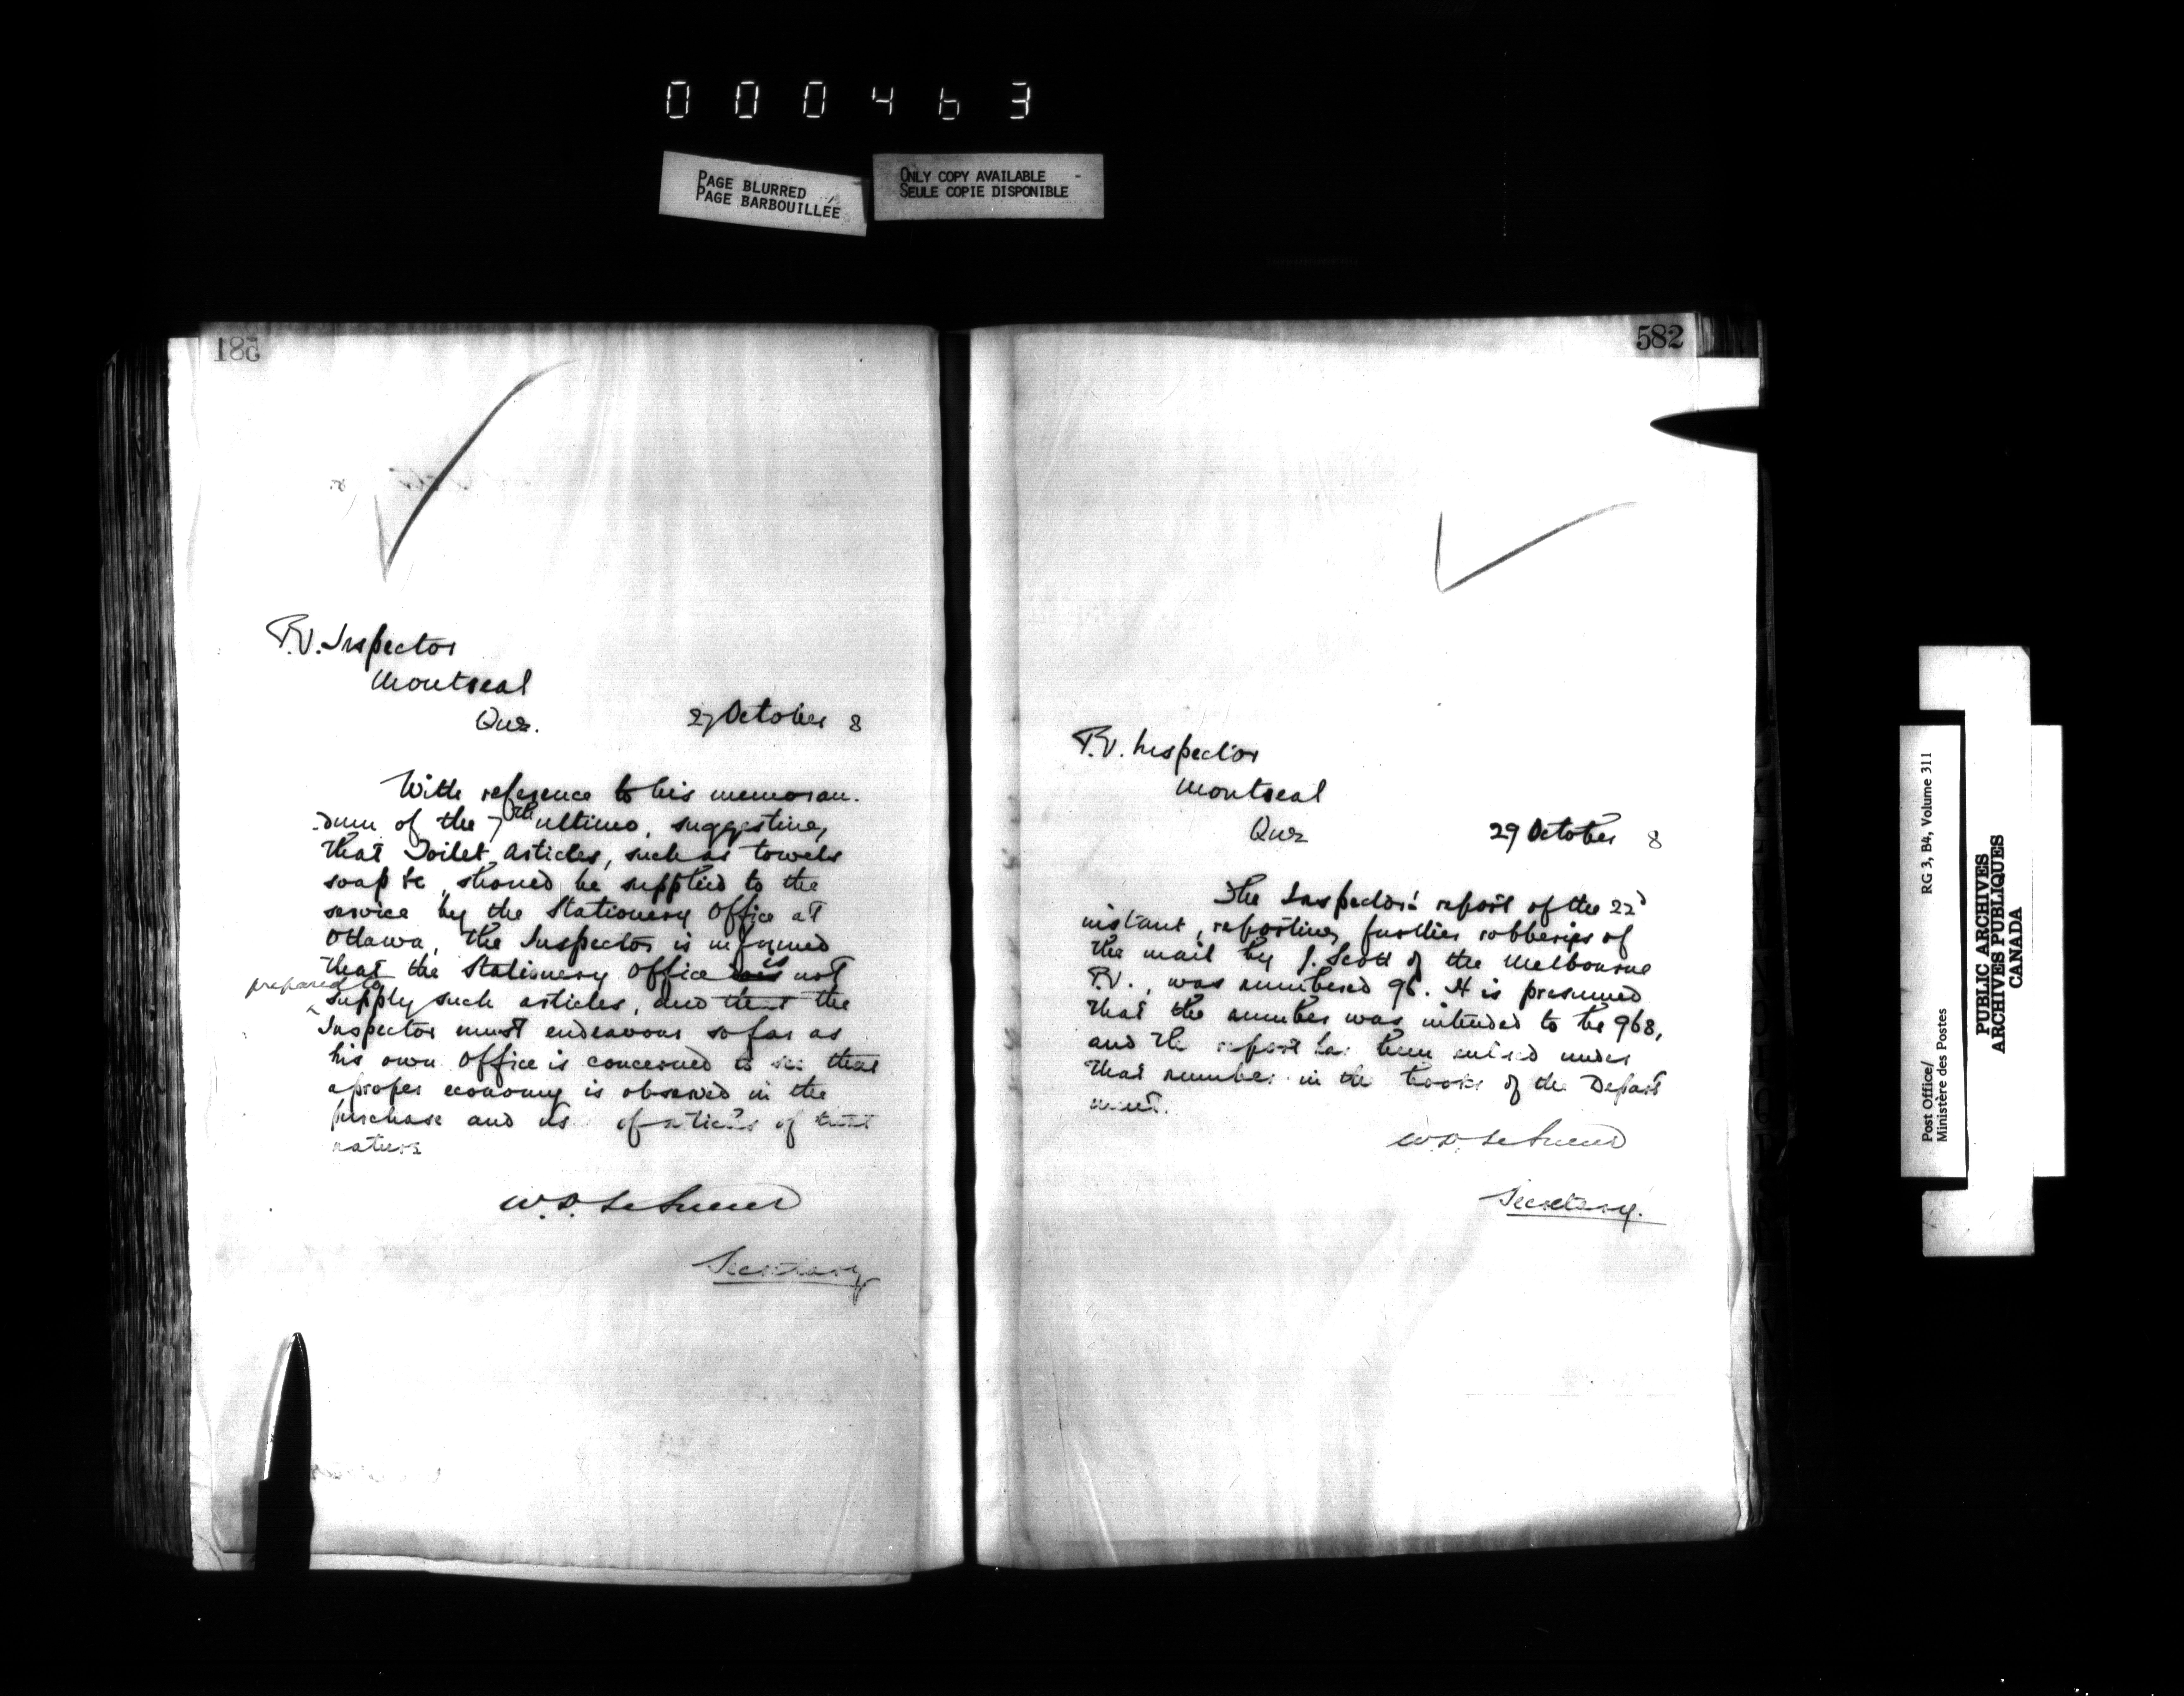 000463
PAGE BLURRED
PAGE BARBOUILLEE
ONLY COPY AVAILABLE -
SEULE COPIE DISPONIBLE
581
P.O. Inspector
Montreal
Que.
27 October 8
With reference to his memoran-
-dum of the 7th ultimo, suggesting,
that Toilet Articles, such as towels
soap &c, should be supplied to the
service by the Stationery Office at
Ottawa, the Inspector is informed
that the Stationery Office is not
prepared to
supply such articles, and that the
Inspector must endeavour so far as
his own office is concerned to see that
a proper economy is observed in the
purchase and use of articles of that
nature
W.D. LeSueur
Secretary
582
P.O. Inspector
Montreal
Que
29 October 8
The Inspector's report of the 22d
instant, reporting further robberies of
the mail by J. Scott of the Melbourne
P.O., was numbered 96. It is presumed
that the number was intended to be 968,
and the report has been entered under
that number in the books of the Depart
ment.
W.D. LeSueur
Secretary.
Post Office/
Ministère des Postes
RG 3, B4, Volume 311
PUBLIC ARCHIVES
ARCHIVES PUBLIQUES
CANADA